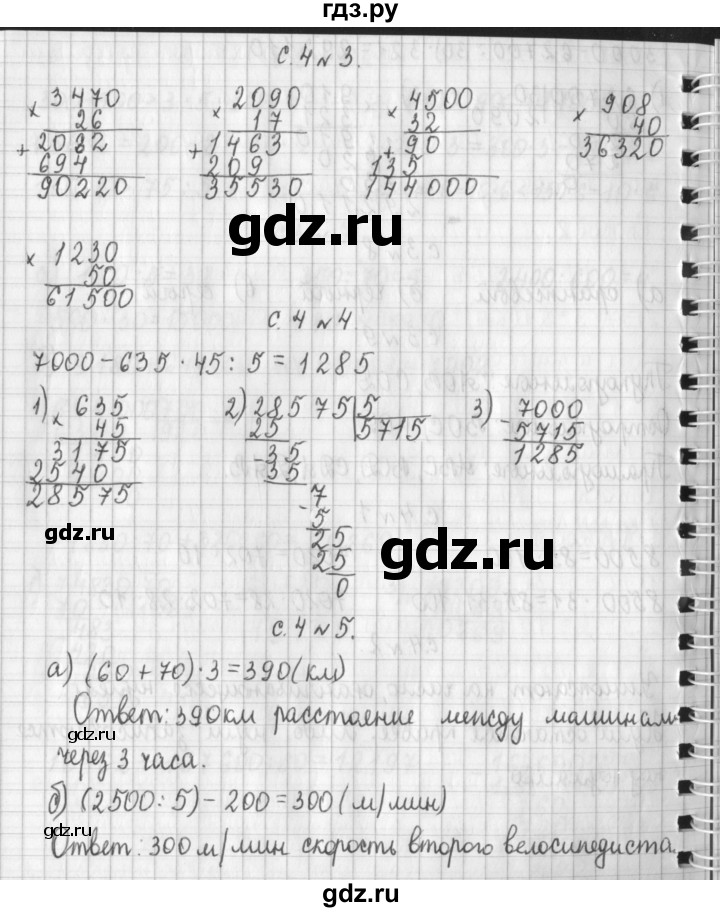 гдз.ру
с. 4 № 3.
× 3470
26
+ 2082
694
90220
× 2090
17
+ 1463
209
35530
× 4500
32
+ 90
135
144000
× 908
40
36320
× 1230
50
61500
gdz.ru
с. 4 № 4.
7000 - 635 · 45 : 5 = 1285
1) × 635
45
3175
2540
28575
2) 28575 5
25 5715
- 35
35
- 7
5
25
25
0
3) 7000
- 5715
1285
gdz.ru
gdz.ru
с. 4 № 5.
а) (60 + 70) · 3 = 390 (км)
Ответ: 390 км расстояние между машинами
через 3 часа.
б) (2500 : 5) - 200 = 300 (м/мин)
gdz.ru
Ответ: 300 м/мин скорость второго велосипедиста.
gdz.ru